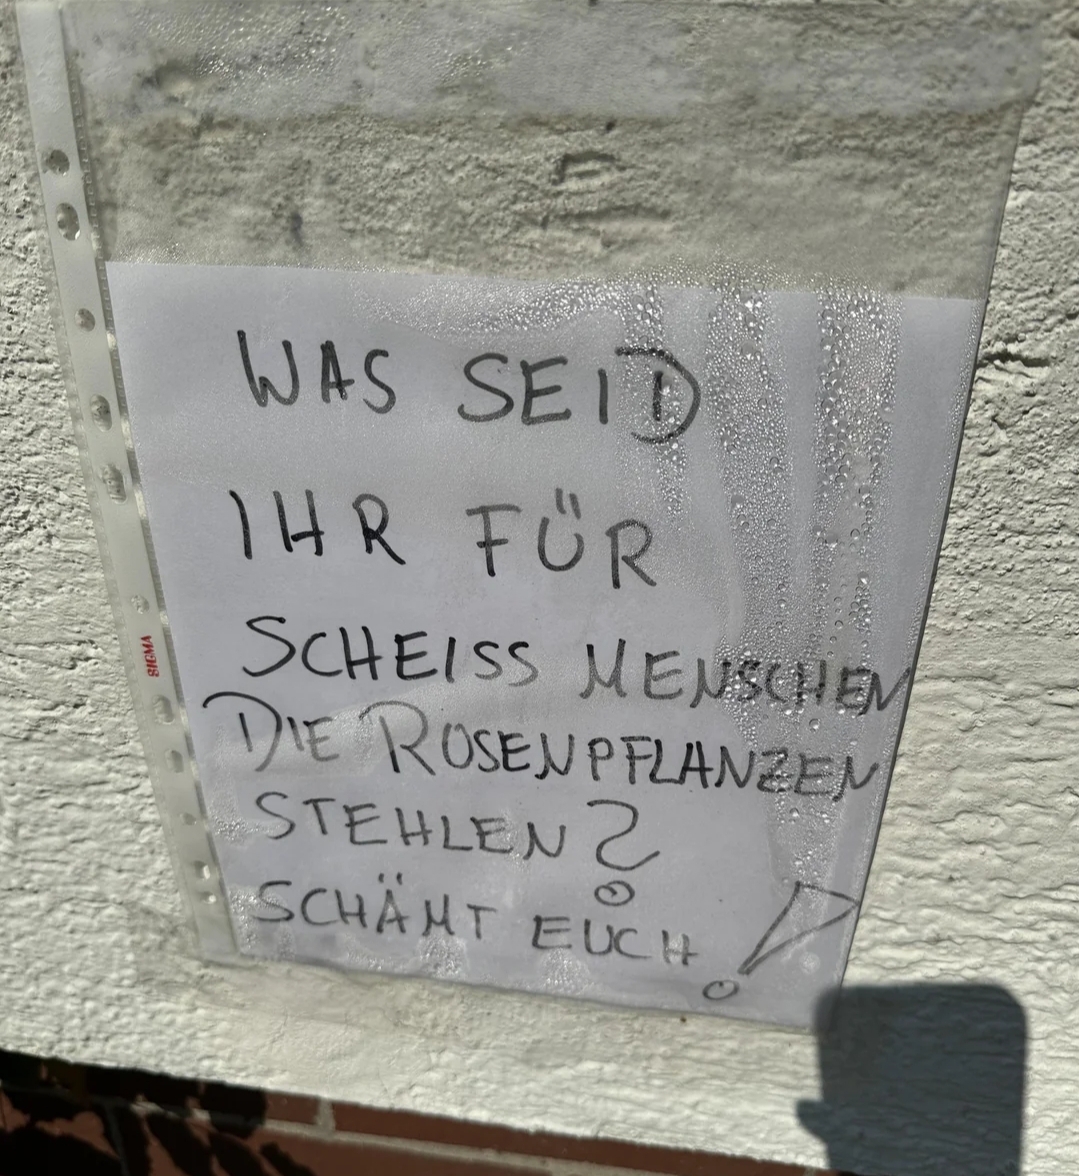 WAS SEID
IHR FÜR
SCHEISS MENSCHEN
DIE ROSENPFLANZEN
STEHLEN?
SCHÄMT EUCH!
SIGMA